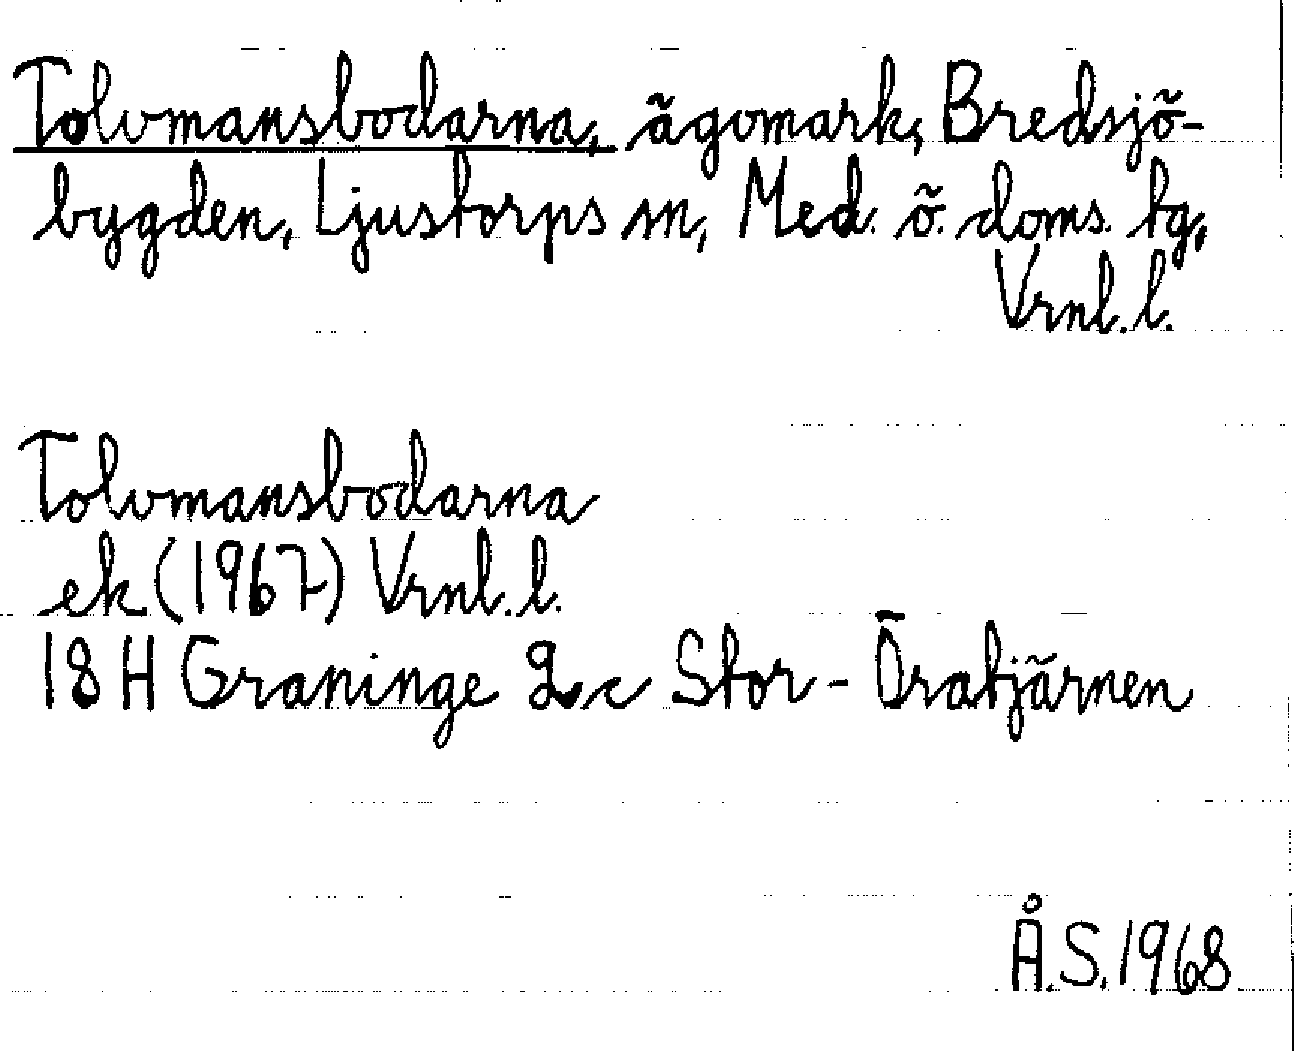 Tolvmansbodarna, ägomark, Bredsjö-
bygden, Ljustorps sn, Med. ö. doms. tg,
Vrnl. l.
Tolvmansbodarna
ek (1967) Vrnl. l.
18 H Graninge 2 c Stor-Öratjärnen
Å.S. 1968